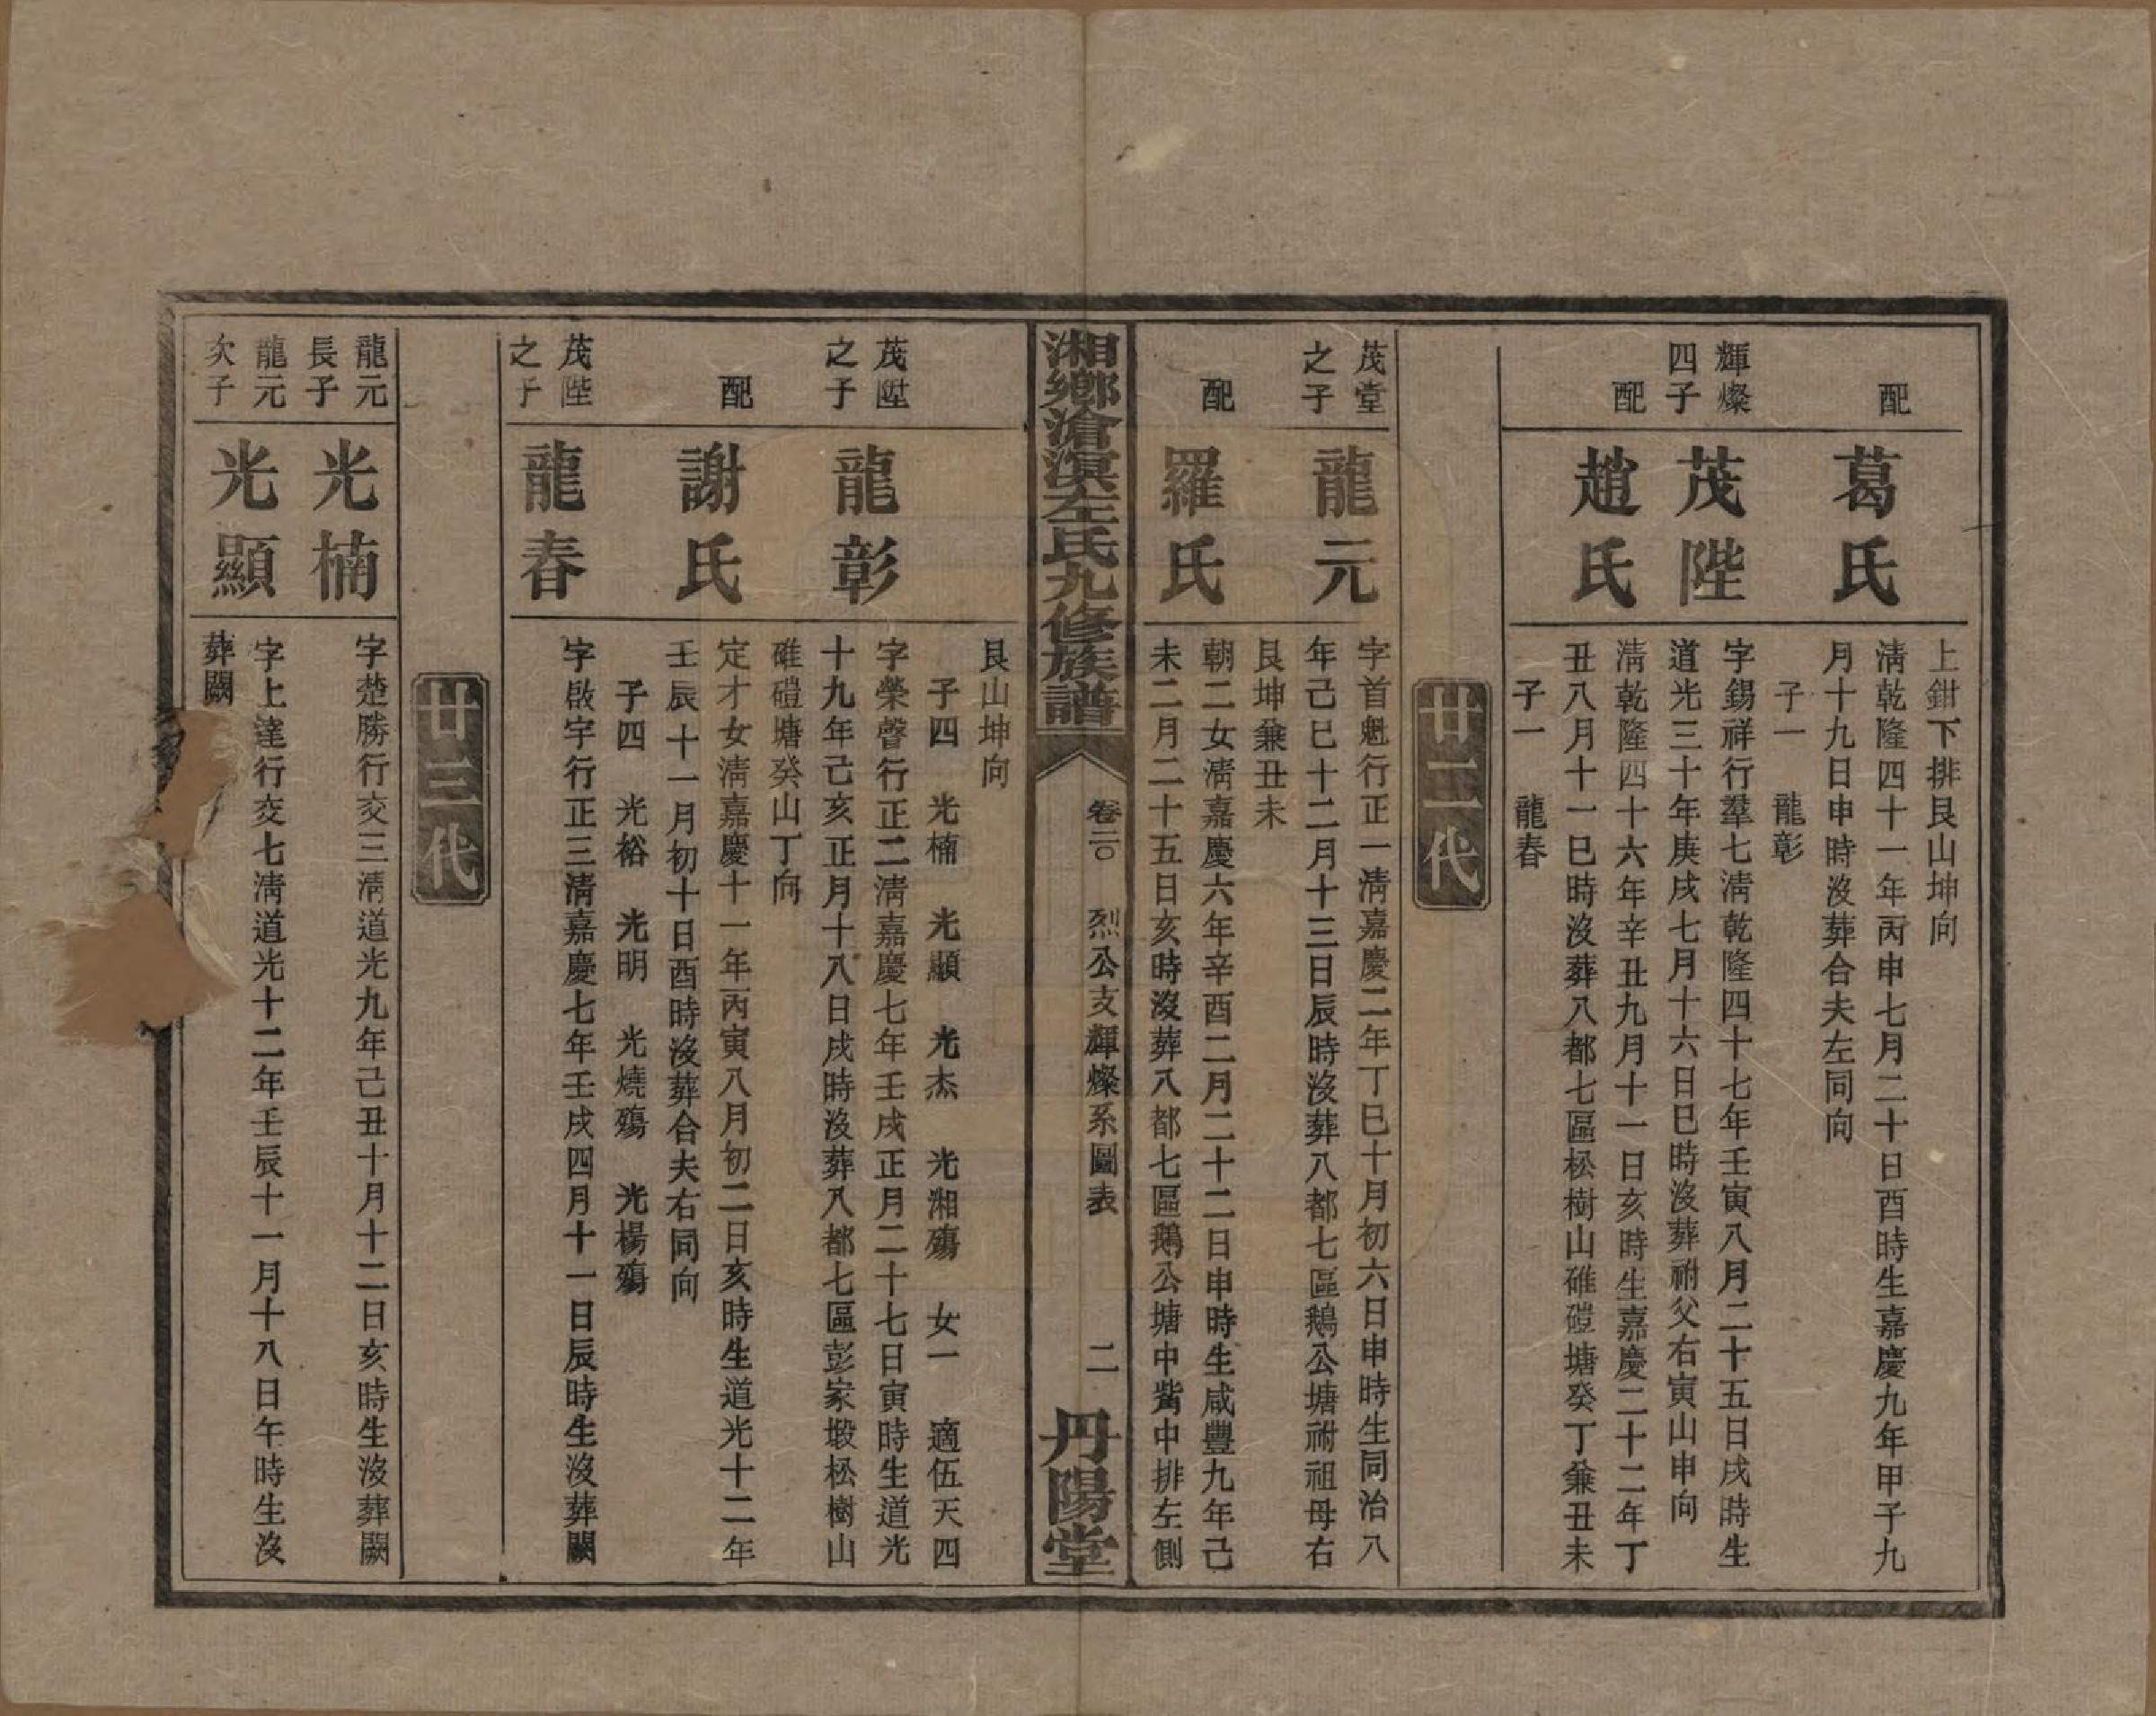 上鉗下排艮山坤向
配
葛氏
淸乾隆四十一年丙申七月二十日酉時生嘉慶九年甲子九
月十九日申時沒葬合夫左同向
子一　龍彰
輝燦
四子
茂陛
字錫祥行羣七淸乾隆四十七年壬寅八月二十五日戌時生
道光三十年庚戌七月十六日巳時沒葬祔父右寅山申向
配
趙氏
淸乾隆四十六年辛丑九月十一日亥時生嘉慶二十二年丁
丑八月十一巳時沒葬八都七區松樹山碓磑塘癸丁兼丑未
子一　龍春
廿二代
茂堂
之子
龍元
字首魁行正一淸嘉慶二年丁巳十月初六日申時生同治八
年己巳十二月十三日辰時沒葬八都七區鵝公塘祔祖母右
艮坤兼丑未
配
羅氏
朝二女淸嘉慶六年辛酉二月二十二日申時生咸豐九年己
未二月二十五日亥時沒葬八都七區鵝公塘中嘴中排左側
湘鄉滄溟左氏九修族譜
卷三〇　烈公支輝燦系圖表　二
丹陽堂
艮山坤向
子四　光楠　光顯　光杰　光湘殤　女一　適伍天四
茂陞
之子
龍彰
字榮聲行正二淸嘉慶七年壬戌正月二十七日寅時生道光
十九年己亥正月十八日戌時沒葬八都七區彭家塅松樹山
碓磑塘癸山丁向
配
謝氏
定才女淸嘉慶十一年丙寅八月初二日亥時生道光十二年
壬辰十一月初十日酉時沒葬合夫右同向
子四　光裕　光明　光燒殤　光楊殤
茂陛
之子
龍春
字啟宇行正三淸嘉慶七年壬戌四月十一日辰時生沒葬闕
廿三代
龍元
長子
光楠
字楚勝行交三淸道光九年己丑十月十二日亥時生沒葬闕
龍元
次子
光顯
字上達行交七淸道光十二年壬辰十一月十八日午時生沒
葬闕